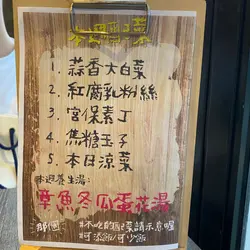 1. 蒜香大白菜
2. 紅腐乳粉絲
3. 宮保素丁
4. 焦糖玉子
5. 本日涼菜
本週養生湯:
章魚冬瓜蛋花湯
#不吃的配菜請示意喔
#可添飯/可少飯